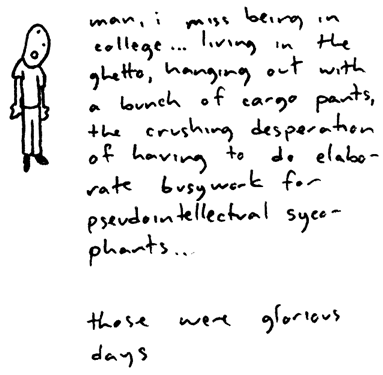 man, i miss being in
college... living in the
ghetto, hanging out with
a bunch of cargo pants,
the crushing desperation
of having to do elabo-
rate busywork for
pseudointellectual syco-
phants...
those were glorious
days